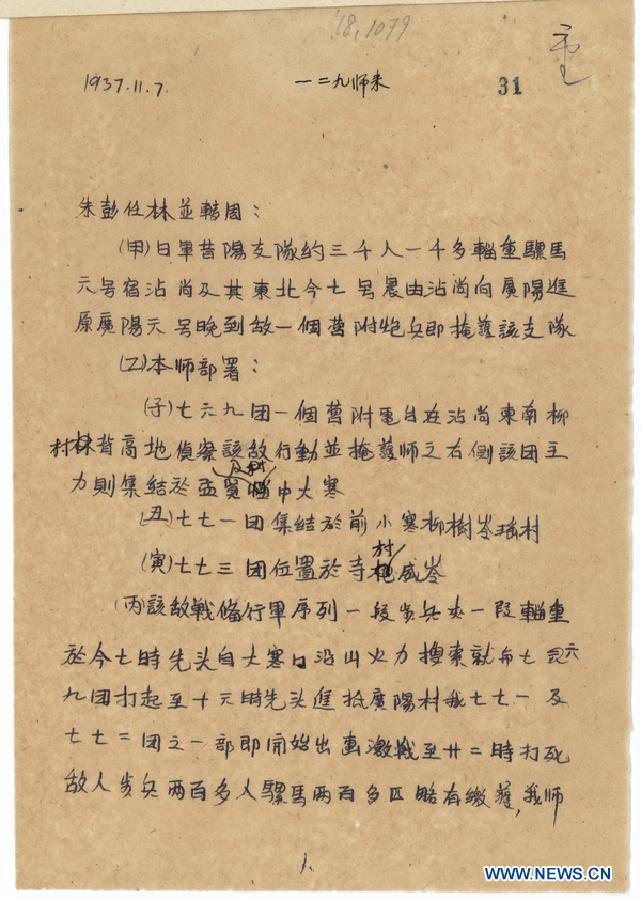 18,1079
1937.11.7.
一二九师来
31
朱彭任林並轄周：
(甲)日軍昔陽支隊約三千人一千多輜重騾馬
元号宿沾尚及其東北今七号晨由沾尚向廣陽進
原廣陽元号晚到敌一個营附炮兵即掩護該支隊
(乙)本师部署：
(子)七六九团一個营附電台在沾尚東南柳
村林背高地偵察該敌行動並掩護师之右側該团主
力則集結於 及 中大寒
(丑)七七一团集結於前小寒柳樹岺瑶村
村
(寅)七七三团位置於寺 威岺
(丙)該敌戰备行軍序列一段步兵夾一段輜重
於今七時先头自大寒口沿山火力搜索就和七六
九团打起至十六時先头進抵廣陽村我七七一及
七七二团之一部即開始出 激戰至廿二時打死
敌人步兵两百多人騾馬两百多匹略有缴獲，我师
1.
WWW.NEWS.CN